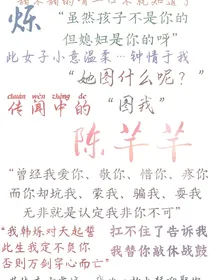 烁
“虽然孩子不是你的
但媳妇是你的呀”
此女子小意温柔…钟情于我
“她图什么呢？”
chuán wén zhōng de
传闻中的
“图我”
陈芊芊
“曾经我爱你、敬你、惜你、疼你
而你却坑我、蒙我、骗我、耍我
无非就是认定我非你不可”
“我韩烁对天起誓
此生我定不负你
否则万剑穿心而亡”
扛不住了告诉我
我替你敲休战鼓